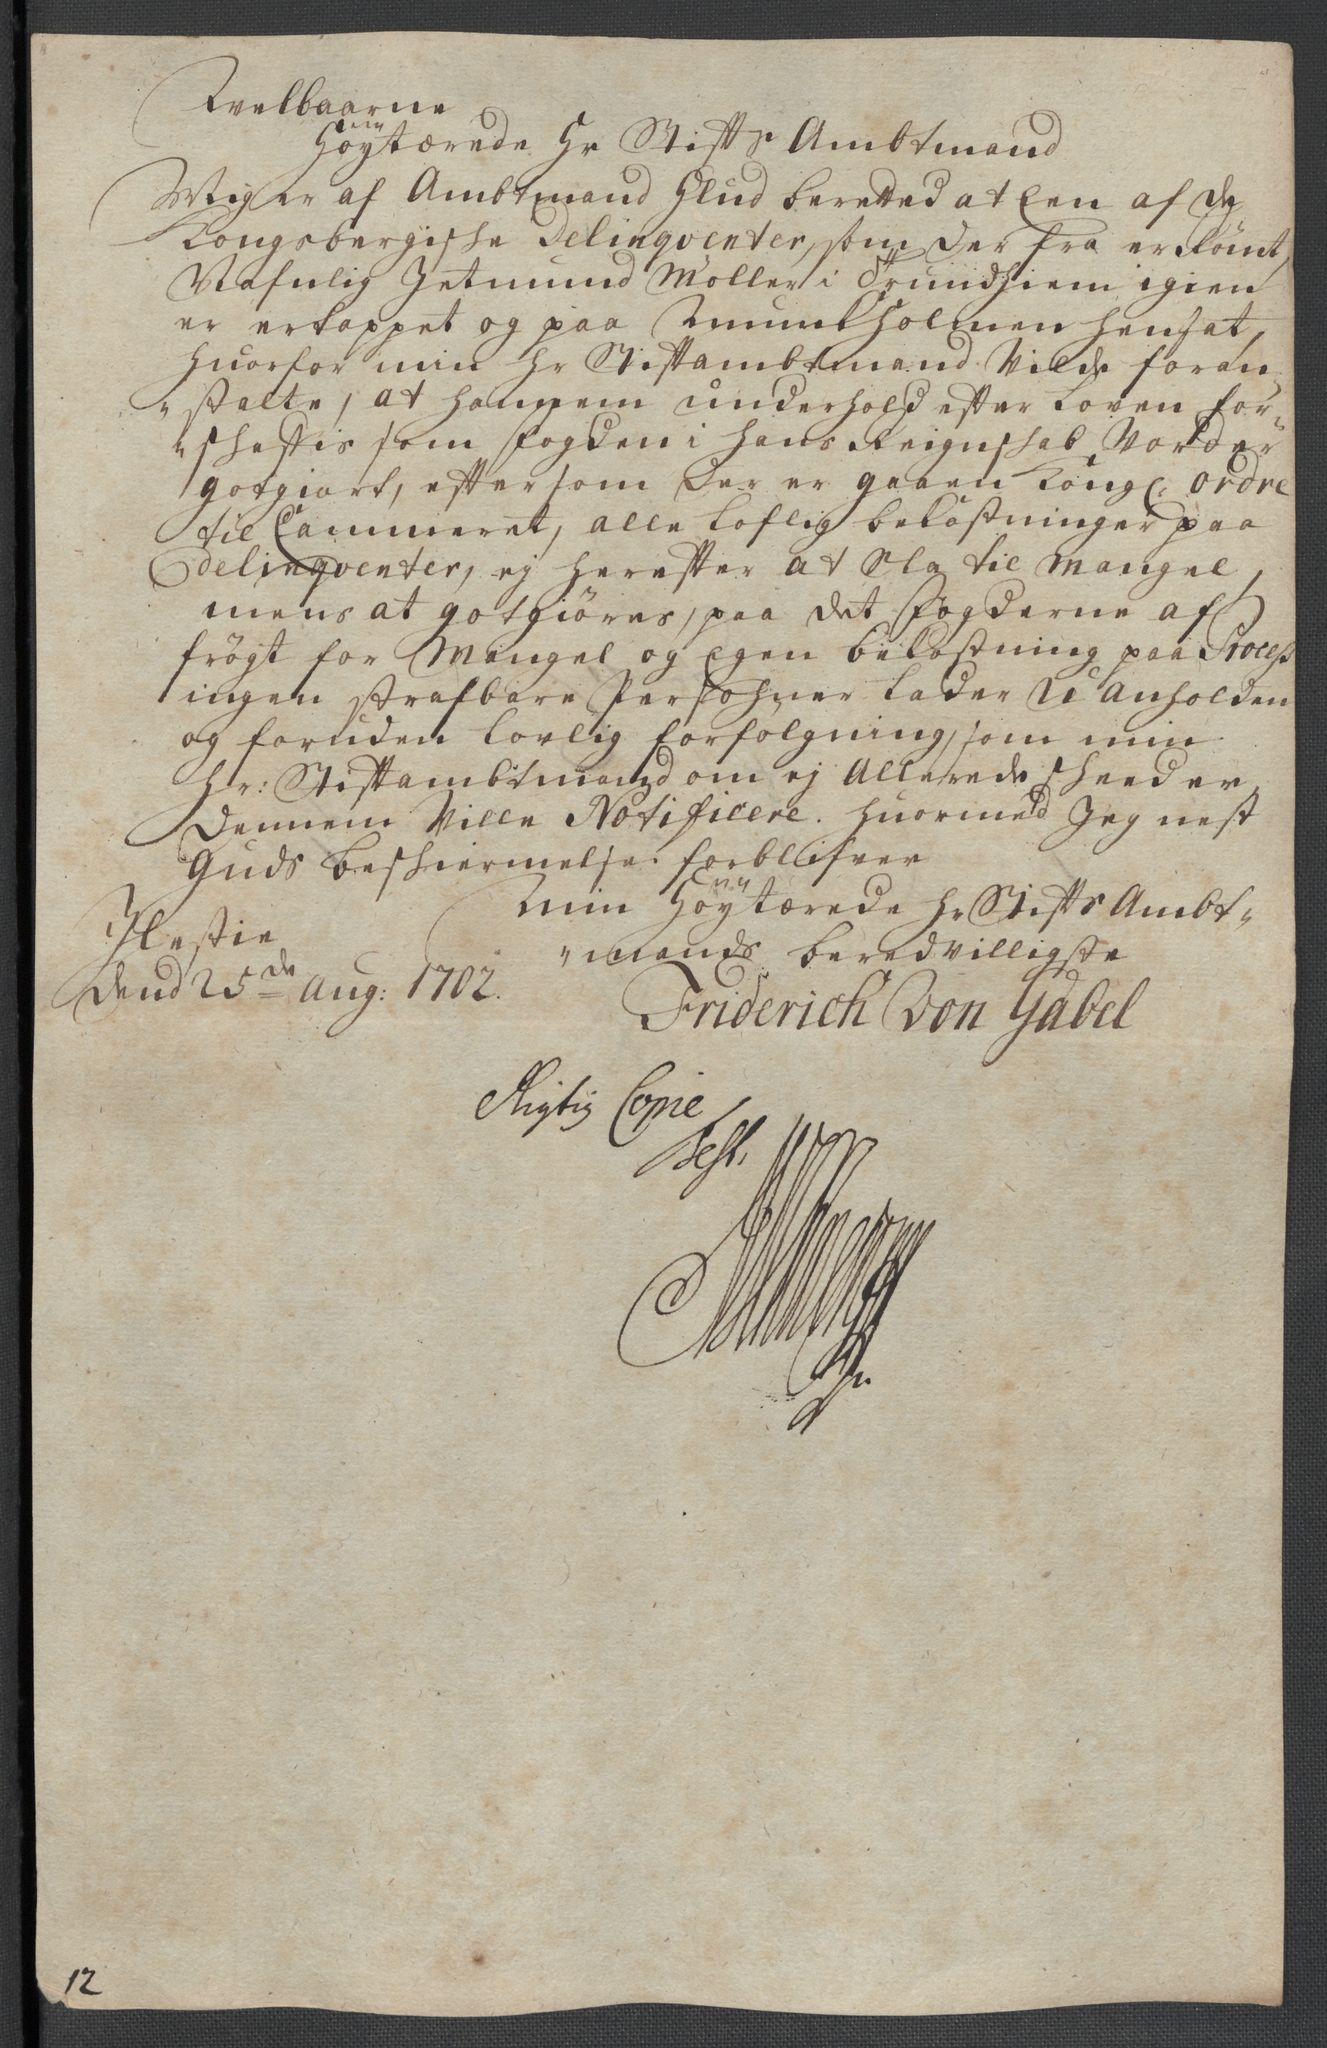 Welbaarne
Höÿtærede Hr Stiffts Ambtmand
Mig er af Ambtmand Glud beretted at een af de
Kongsbergishe Delinqventer, som der fra er kömt,
Nafnlig Jetmund Moller i Trundhiem igien
er ertappet og paa Munkholmen hensat,
huorfor min Hr Stiftambtmand Vilde foran-
"stalte, at hannem underhold efter Loven for-
"shaffis som fogden i hans Reignshab Vorder
godgiort, eftersom der er gaaen Kongl. ordre
til Cammeret, alle Loflig bekostninger paa
delinqventer, ej herefter at Sla til Mangel,
mens at gotgiöres, paa det fogderne af
frögt for Mangel og egen bekostning paa Process
ingen strafbare Persohner lader u-anholden
og foruden Lovlig forfölgning, som min
Hr: Stiftambtmand om ej Allerede sheed er,
dennem Ville Notificere. huormed Jeg nest
Guds beshiermelse forblifver
Min Höÿtærede Hr Stiffts Ambt-
"mands beredvilligste
dend 25de Aug: 1702.
Friderich Von Gabel
Rigtig Copie
Test.
12